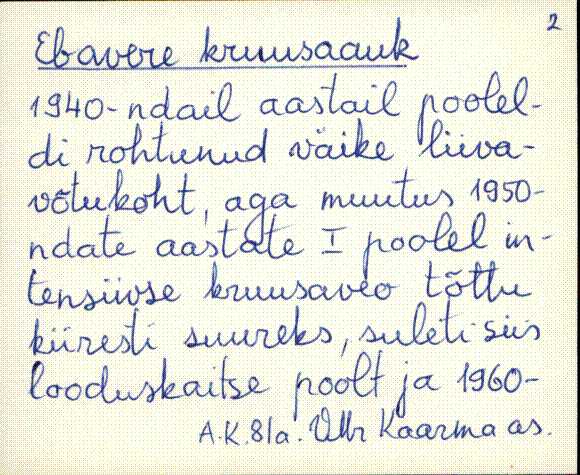 2
Ebavere kruusaauk
1940-ndail aastail poolel-
di rohtunud väike liiva-
võtukoht, aga muutus 1950-
ndate aastate I poolel in-
tensiivse kruusaveo tõttu
kiiresti suureks, suleti siis
looduskaitse poolt ja 1960-
A.K. 81a. Kaarma as.